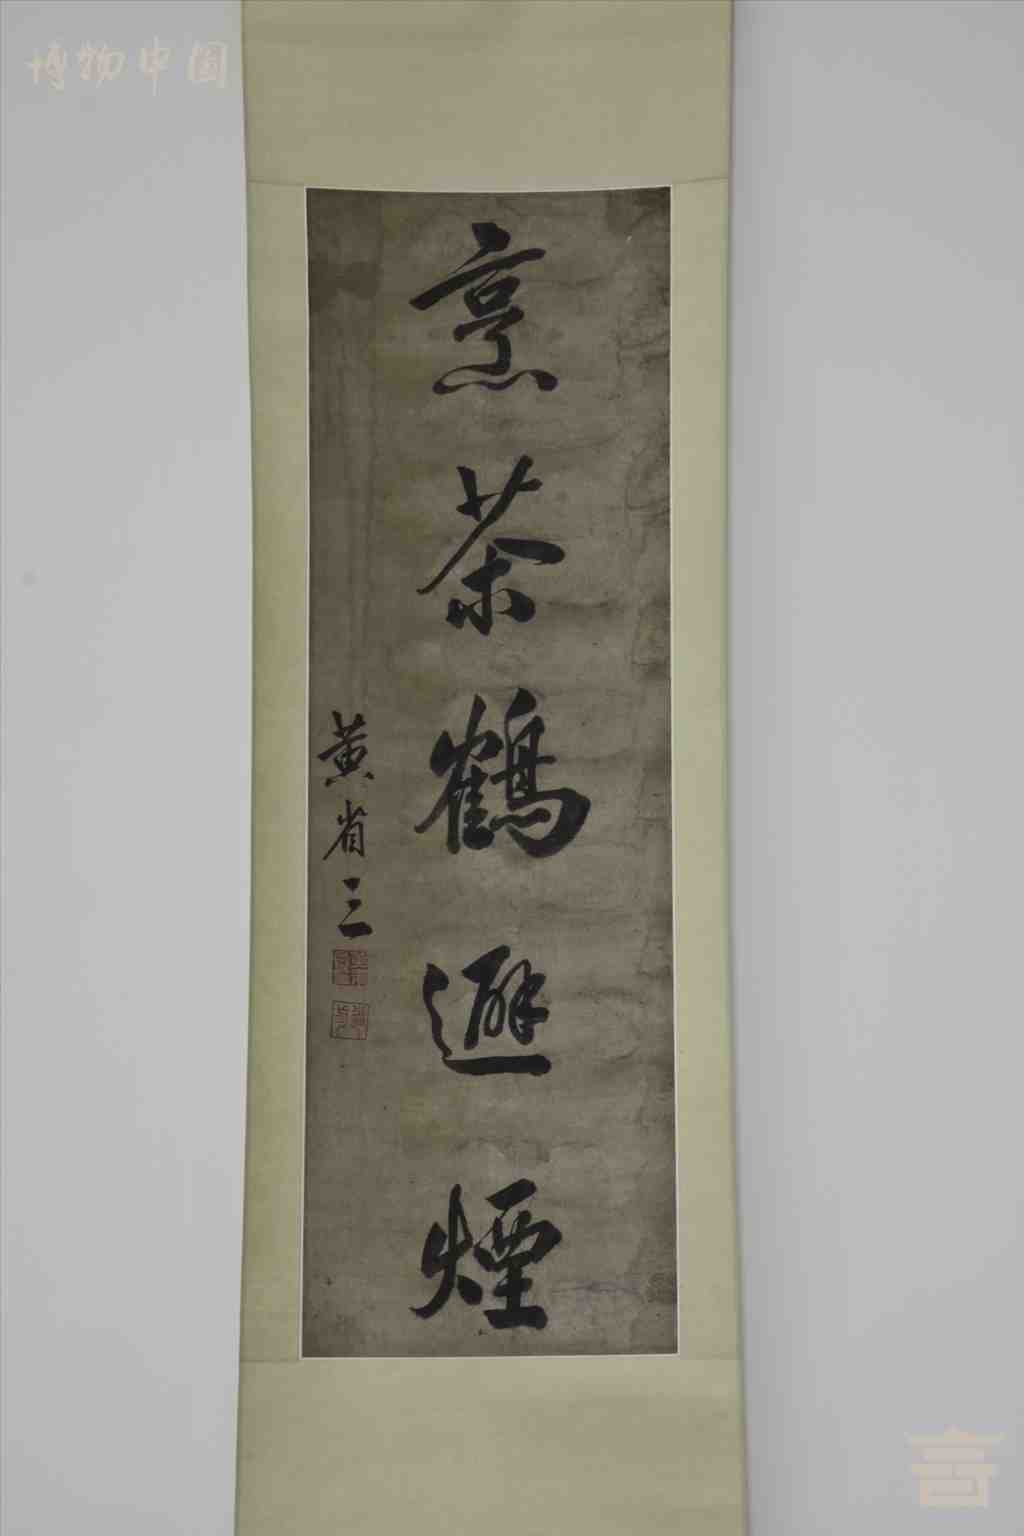 博物中国
烹茶鶴避煙
黄省三